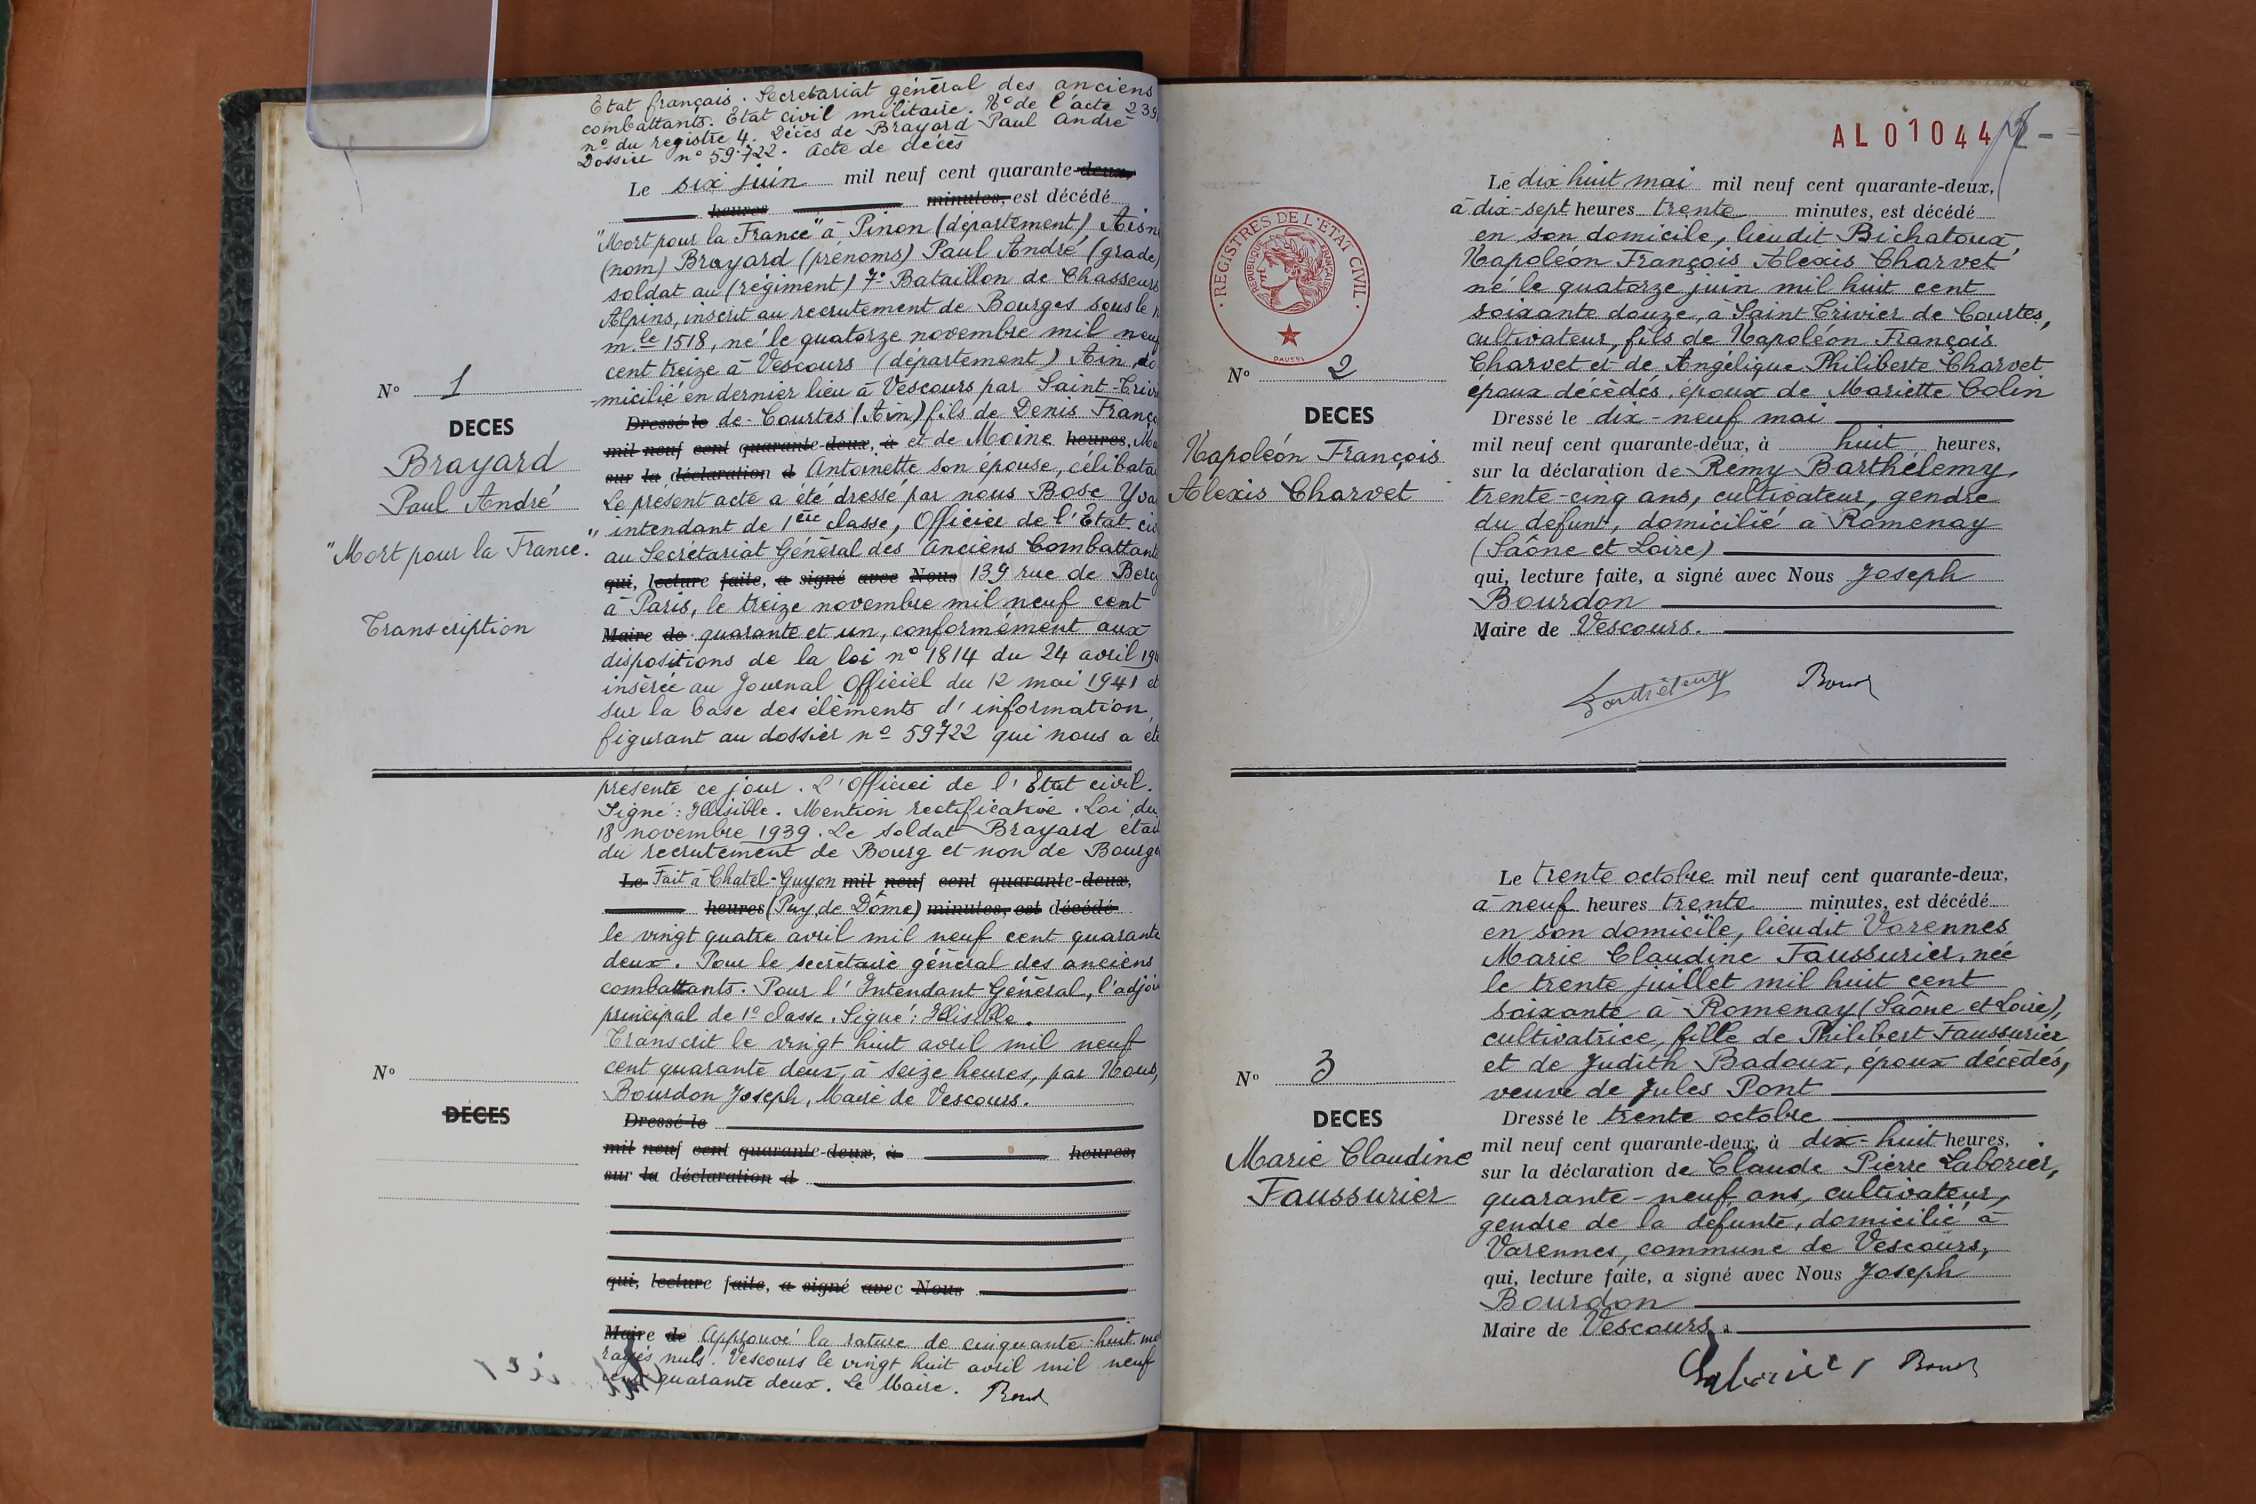 Etat français. Secrétariat général des anciens
combattants. Etat civil militaire. N° de l'acte 239
n° du registre 4. Décès de Brayard Paul André
Dossier n° 59.722. Acte de décès
Le six juin mil neuf cent quarante-deux,
heures minutes, est décédé
"Mort pour la France" à Pinon (département) Aisne
(nom) Brayard (prénoms) Paul André (grade)
soldat au (régiment) 7e Bataillon de Chasseurs
Alpins, inscrit au recrutement de Bourges sous le
mle 1518, né le quatorze novembre mil neuf
cent treize à Vescours (département) Ain, do
N° 1
micilié en dernier lieu à Vescours par Saint-Trivi
DECES
Dressé le de-Courtes (Ain) fils de Denis Franço
mil neuf cent quarante-deux, à et de Moine heures, Ma
Brayard
sur la déclaration d Antoinette son épouse, célibata
Paul André
Le présent acte a été dressé par nous Bosc Yva
intendant de 1ère classe, Officier de l'Etat-civ
"Mort pour la France."
au Secrétariat Général des Anciens Combattants
qui, lecture faite, a signé avec Nous 139 rue de Bercy
à Paris, le treize novembre mil neuf cent
Transcription
Maire de quarante et un, conformément aux
dispositions de la loi n° 1814 du 24 avril 194
insérée au Journal Officiel du 12 mai 1941 et
sur la base des éléments d'information,
figurant au dossier n° 59722 qui nous a été
présenté ce jour. L'Officier de l'Etat civil.
Signé: Illisible. Mention rectificative. Loi du
18 novembre 1939. Le soldat Brayard était
du recrutement de Bourg et non de Bourge
Le Fait à Chatel-Guyon mil neuf cent quarante-deux,
heures (Puy de Dôme) minutes, est décédé
le vingt quatre avril mil neuf cent quarante
deux. Pour le secrétaire général des anciens
combattants. Pour l'Intendant Général, l'adjoi
principal de 1e classe. Signé: Illisible.
Transcrit le vingt huit avril mil neuf
N°
cent quarante deux, à seize heures, par Nous,
Bourdon Joseph, Maire de Vescours.
DECES
Dressé le
mil neuf cent quarante-deux, à heures,
sur la déclaration d
qui, lecture faite, a signé avec Nous
Maire de Approuvé la rature de cinquante-huit mo
rayés nuls. Vescours le vingt huit avril mil neuf
cent quarante deux. Le Maire.
AL 01044
REGISTRES DE L'ETAT CIVIL
REPUBLIQUE FRANÇAISE
Le dix huit mai mil neuf cent quarante-deux,
à dix-sept heures trente minutes, est décédé
en son domicile, lieudit Bichatoux,
Napoléon François Alexis Charvet
né le quatorze juin mil huit cent
soixante douze, à Saint Trivier de Courtes,
cultivateur, fils de Napoléon François
Charvet et de Angélique Philiberte Charvet
N° 2
époux décédés, époux de Mariette Colin
DECES
Dressé le dix-neuf mai
mil neuf cent quarante-deux, à huit heures,
Napoléon François
sur la déclaration de Rémy Barthélemy,
Alexis Charvet
trente-cinq ans, cultivateur, gendre
du défunt, domicilié à Romenay
(Saône et Loire)
qui, lecture faite, a signé avec Nous Joseph
Bourdon
Maire de Vescours.
Le trente octobre mil neuf cent quarante-deux,
à neuf heures trente minutes, est décédé
en son domicile, lieudit Varennes
Marie Claudine Faussurier, née
le trente juillet mil huit cent
soixante à Romenay (Saône et Loire),
cultivatrice, fille de Philibert Faussurier
et de Judith Badoux, époux décédés,
N° 3
veuve de Jules Pont
DECES
Dressé le trente octobre
mil neuf cent quarante-deux, à dix-huit heures,
Marie Claudine
sur la déclaration de Claude Pierre Laborier,
Faussurier
quarante-neuf ans, cultivateur,
gendre de la défunte, domicilié à
Varennes, commune de Vescours,
qui, lecture faite, a signé avec Nous Joseph
Bourdon
Maire de Vescours.
Laborier